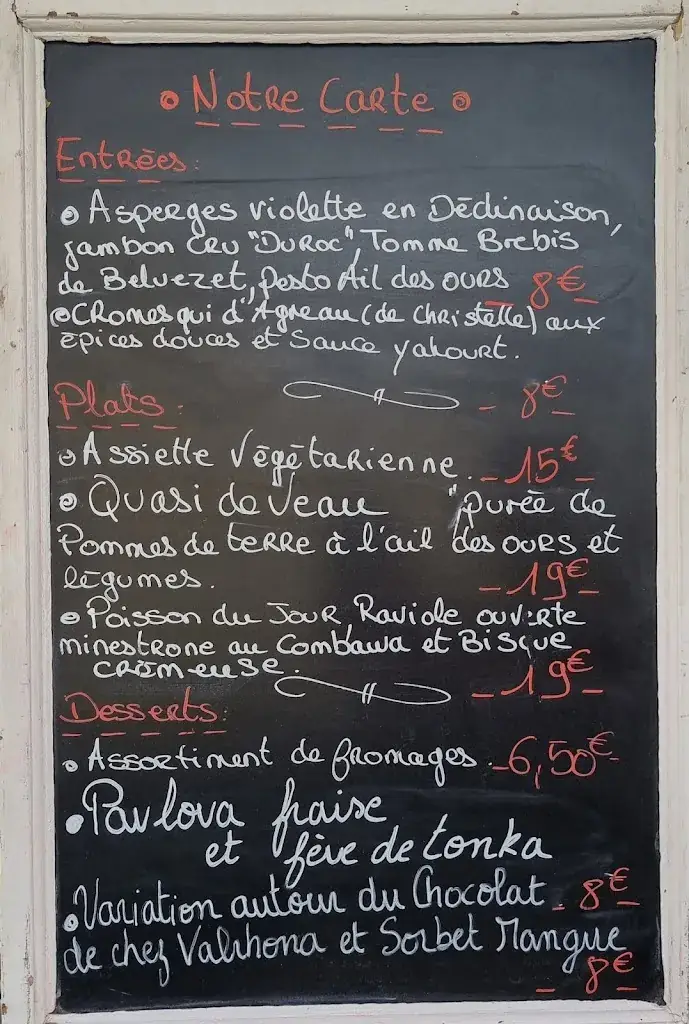 Notre Carte
Entrées:
Asperges violette en Déclinaison,
jambon cru "Duroc", Tomme Brebis
de Belvezet, pesto Ail des ours 8€
Cromesqui d'Agneau (de Christelle) aux
épices douces et Sauce yahourt.
Plats: 8€
Assiette Végétarienne. 15€
Quasi de Veau "purée de
Pommes de terre à l'ail des ours et
légumes. 19€
Poisson du Jour, Raviole ouverte
minestrone au Combawa et Bisque
crémeuse. 19€
Desserts:
Assortiment de fromages. 6,50€
Pavlova fraise
et fève de tonka
Variation autour du Chocolat 8€
de chez Valrhona et Sorbet Mangue
8€